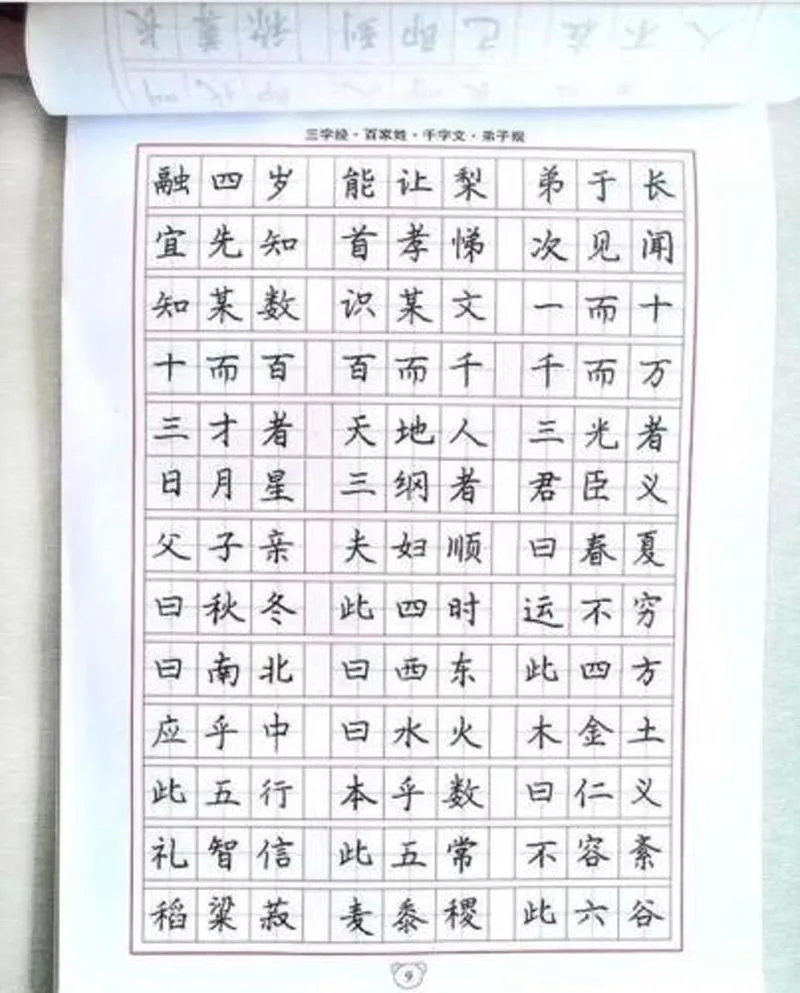 三字经·百家姓·千字文·弟子规
融四岁 能让梨 弟于长
宜先知 首孝悌 次见闻
知某数 识某文 一而十
十而百 百而千 千而万
三才者 天地人 三光者
日月星 三纲者 君臣义
父子亲 夫妇顺 曰春夏
曰秋冬 此四时 运不穷
曰南北 曰西东 此四方
应乎中 曰水火 木金土
此五行 本乎数 曰仁义
礼智信 此五常 不容紊
稻粱菽 麦黍稷 此六谷
9